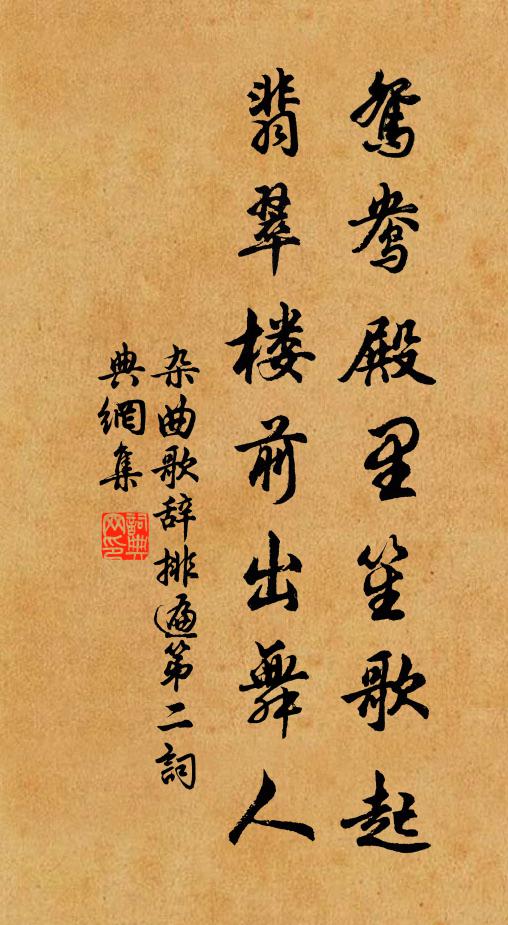 鴛鴦殿里笙歌起
翡翠楼前出舞人
杂曲歌辞排遍第二詞
典網集
詞典网印